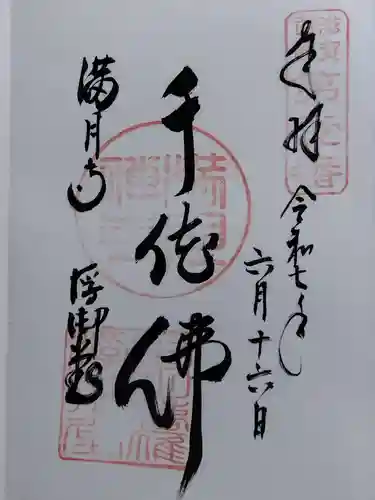 奉拝
令和七年
六月十六日
千体佛
満月寺
浮御堂